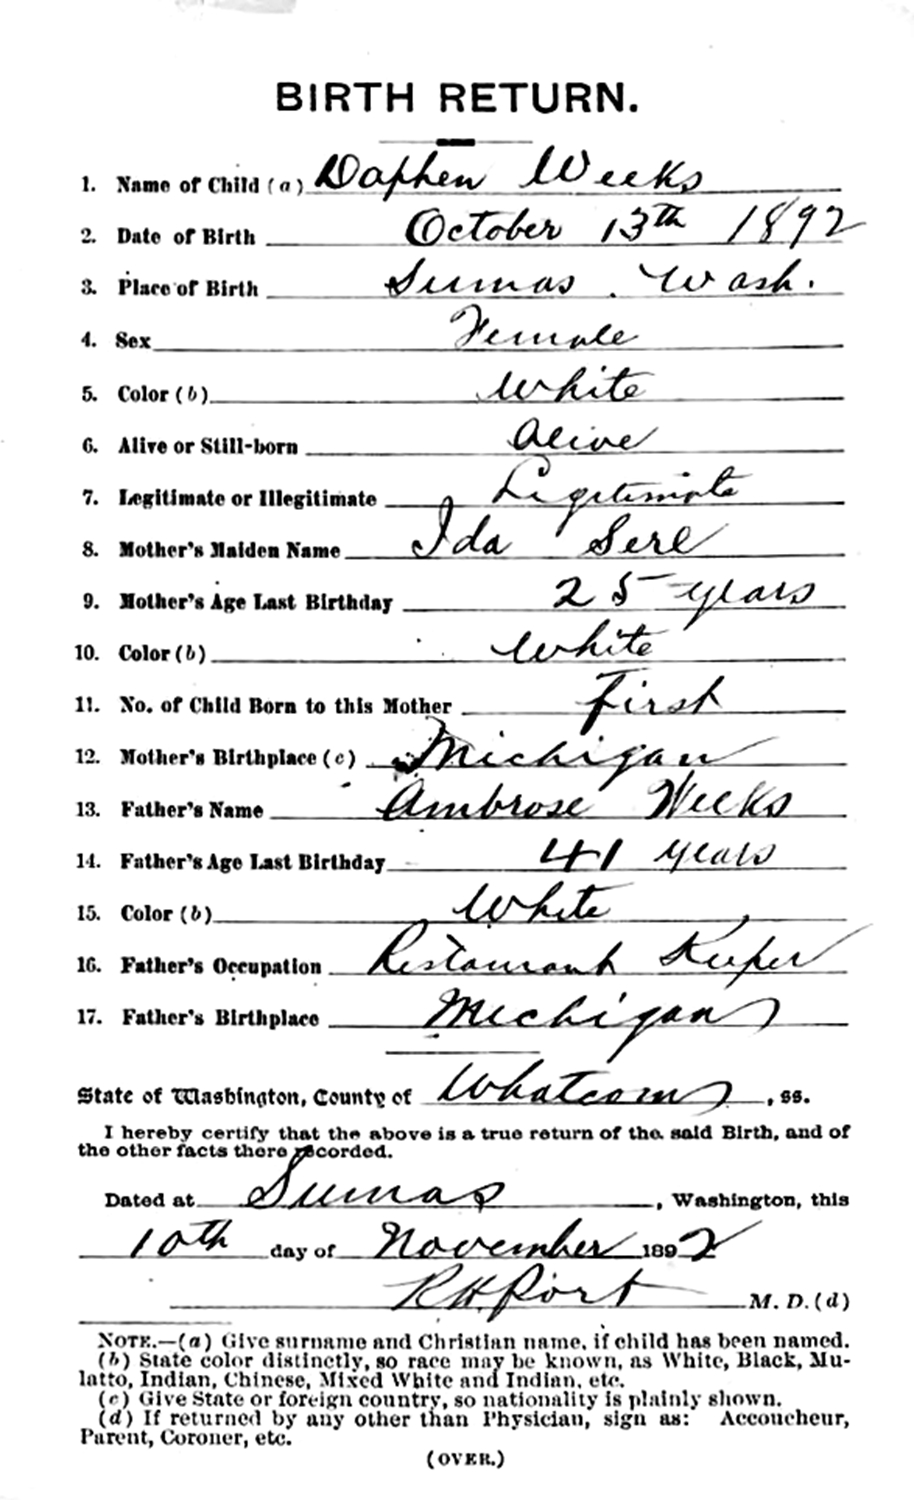 BIRTH RETURN.
1. Name of Child (a) Daphen Weeks
2. Date of Birth October 13th 1892
3. Place of Birth Sumas. Wash.
4. Sex Female
5. Color (b) White
6. Alive or Still-born Alive
7. Legitimate or Illegitimate Legitimate
8. Mother's Maiden Name Ida Serl
9. Mother's Age Last Birthday 25 years
10. Color (b) White
11. No. of Child Born to this Mother First
12. Mother's Birthplace (c) Michigan
13. Father's Name Ambrose Weeks
14. Father's Age Last Birthday 41 years
15. Color (b) White
16. Father's Occupation Restaurant Keeper
17. Father's Birthplace Michigan
State of Washington, County of Whatcom, ss.
I hereby certify that the above is a true return of the said Birth, and of
the other facts there recorded.
Dated at Sumas, Washington, this
10th day of November 1892
R H Port M. D. (d)
NOTE.—(a) Give surname and Christian name, if child has been named.
(b) State color distinctly, so race may be known, as White, Black, Mu-
latto, Indian, Chinese, Mixed White and Indian, etc.
(c) Give State or foreign country, so nationality is plainly shown.
(d) If returned by any other than Physician, sign as: Accoucheur,
Parent, Coroner, etc.
(OVER.)